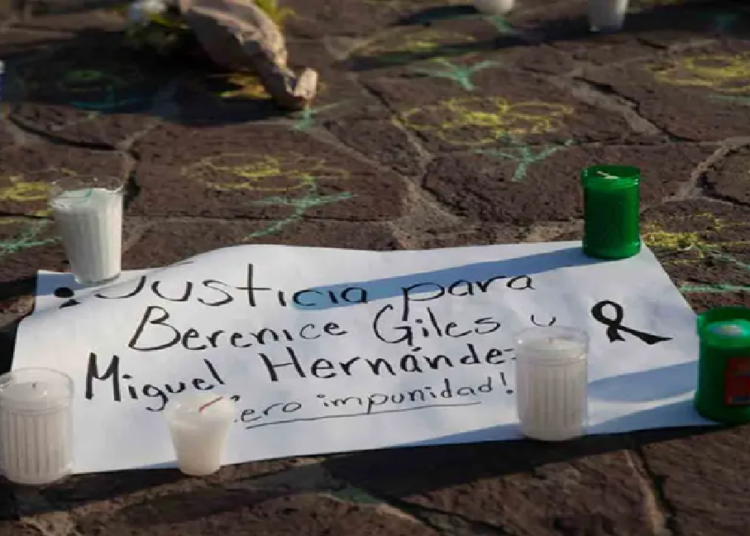 ¡Justicia para
Berenice Giles y
Miguel Hernández
ero impunidad!